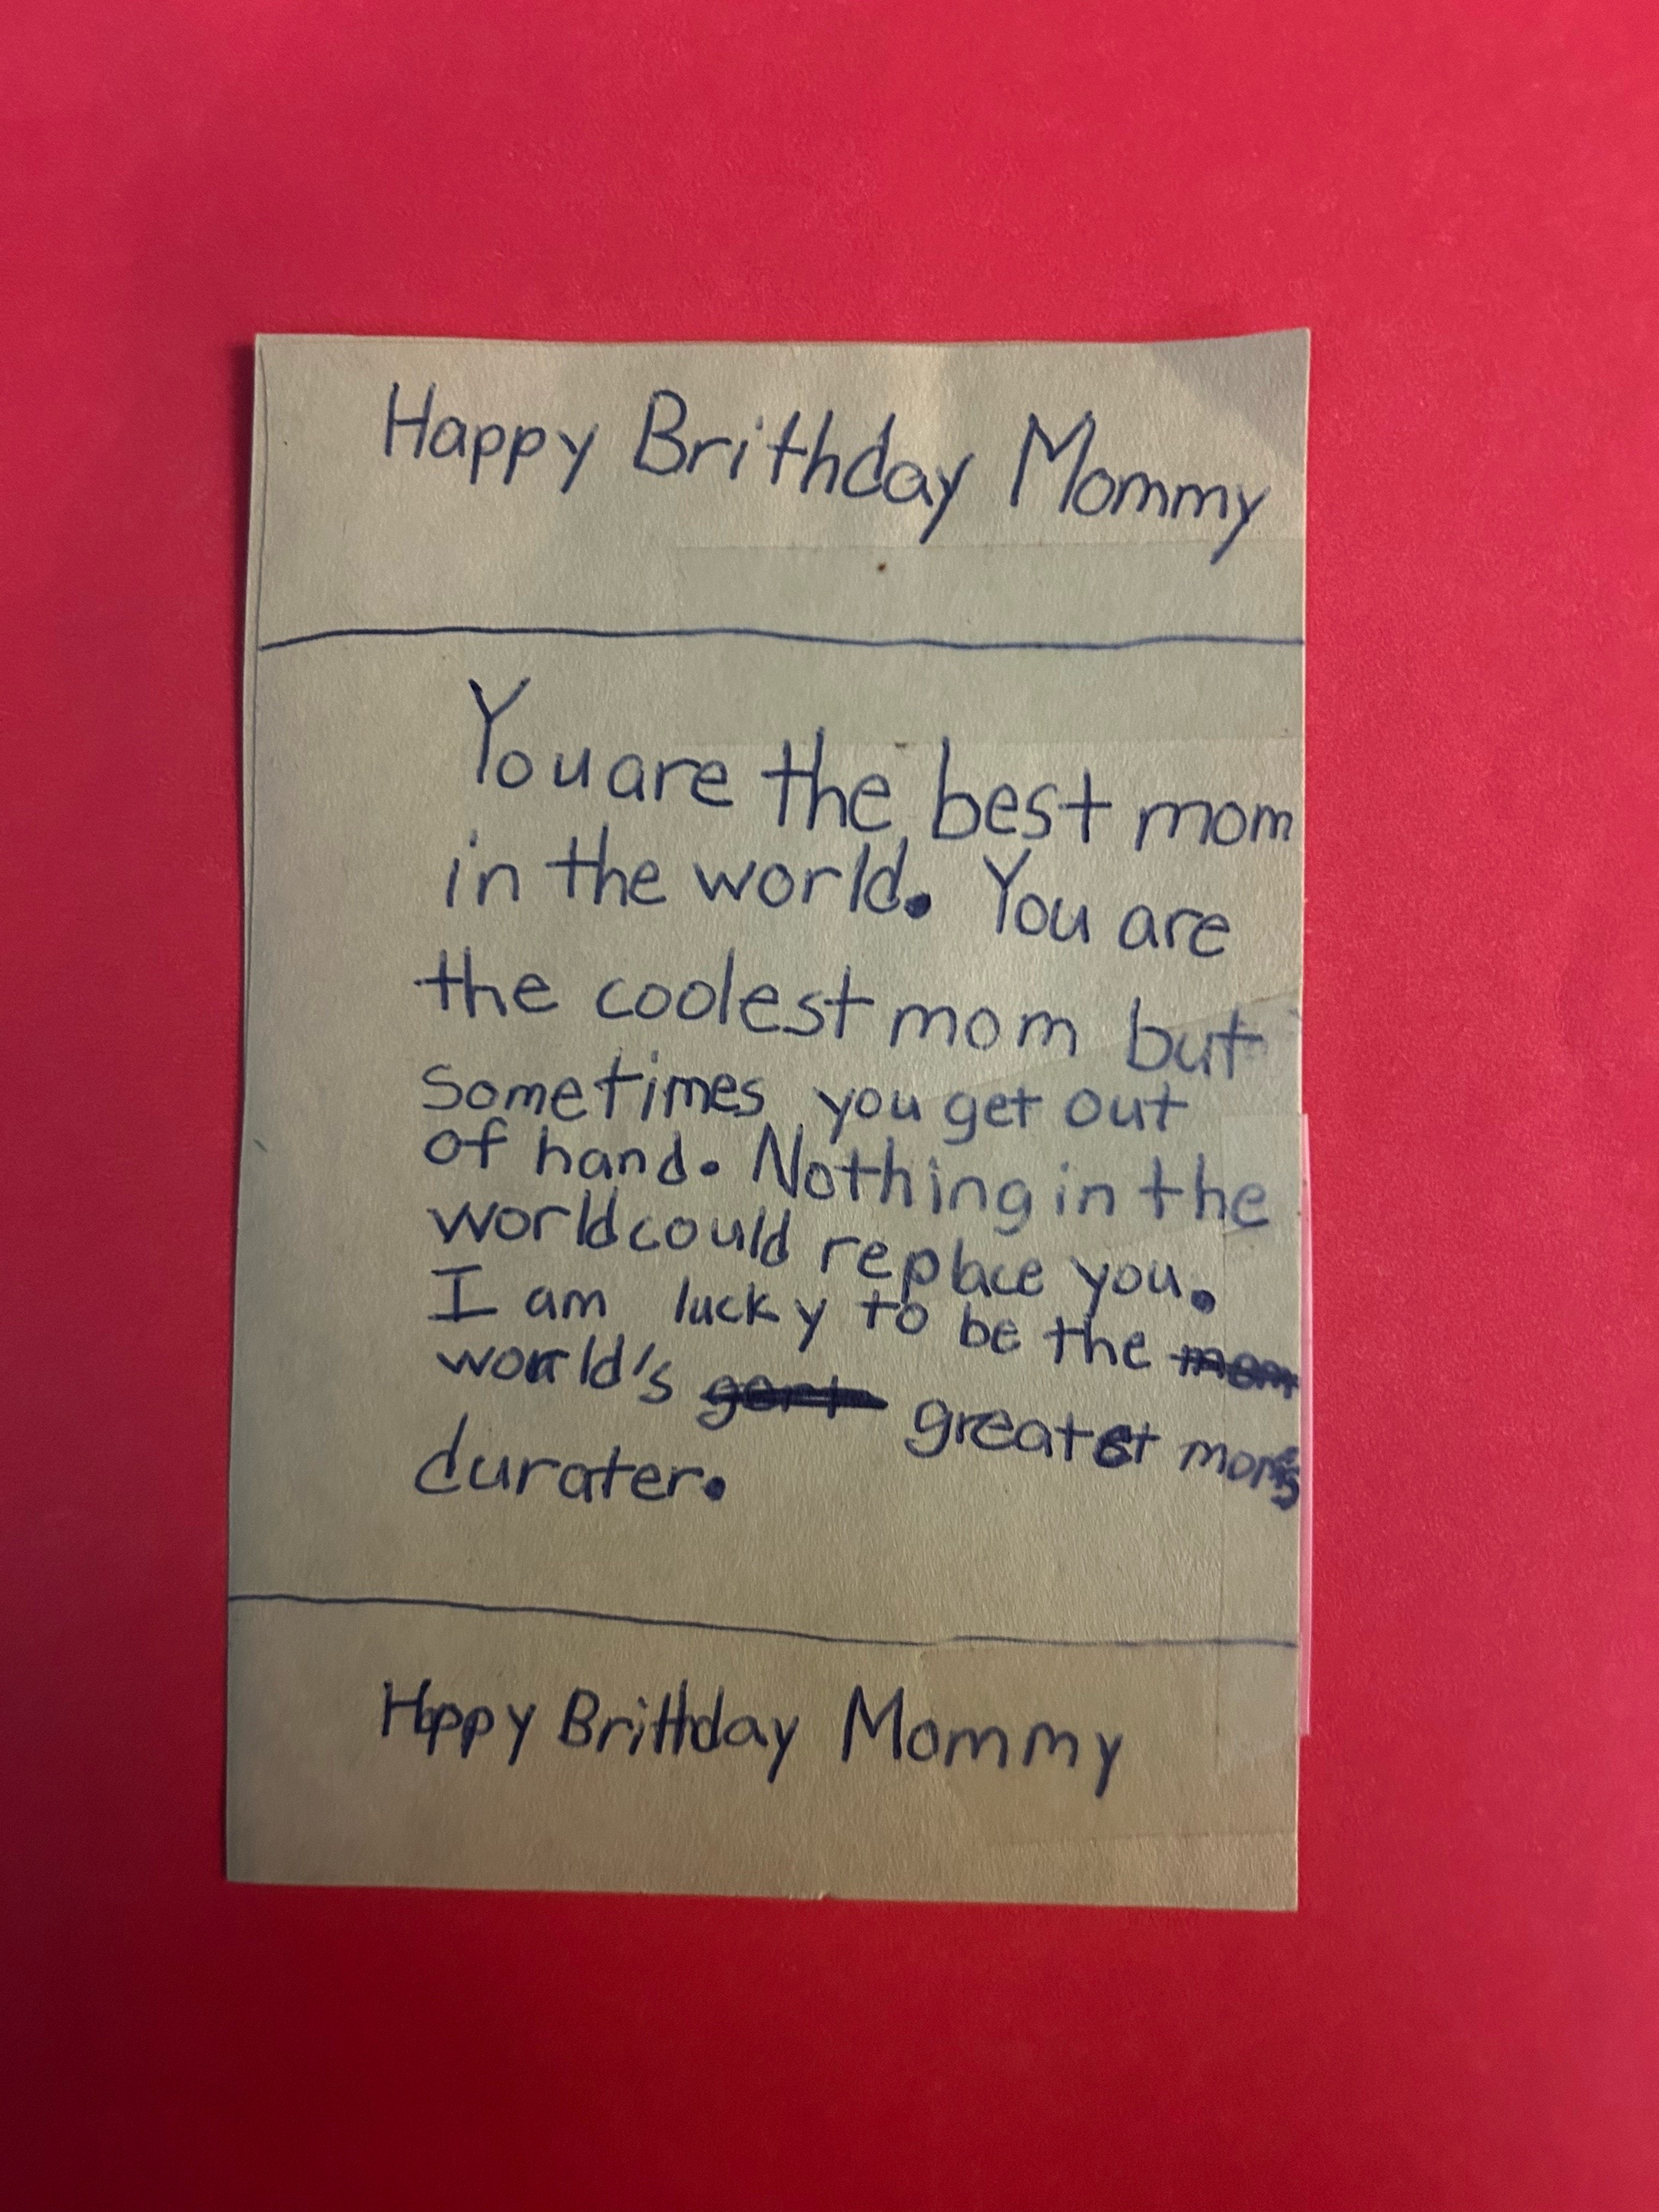 Happy Brithday Mommy
You are the best mom
in the world. You are
the coolest mom but
sometimes you get out
of hand. Nothing in the
world could replace you.
I am lucky to be the mom
world's greatest moms
durater.
Happy Brithday Mommy